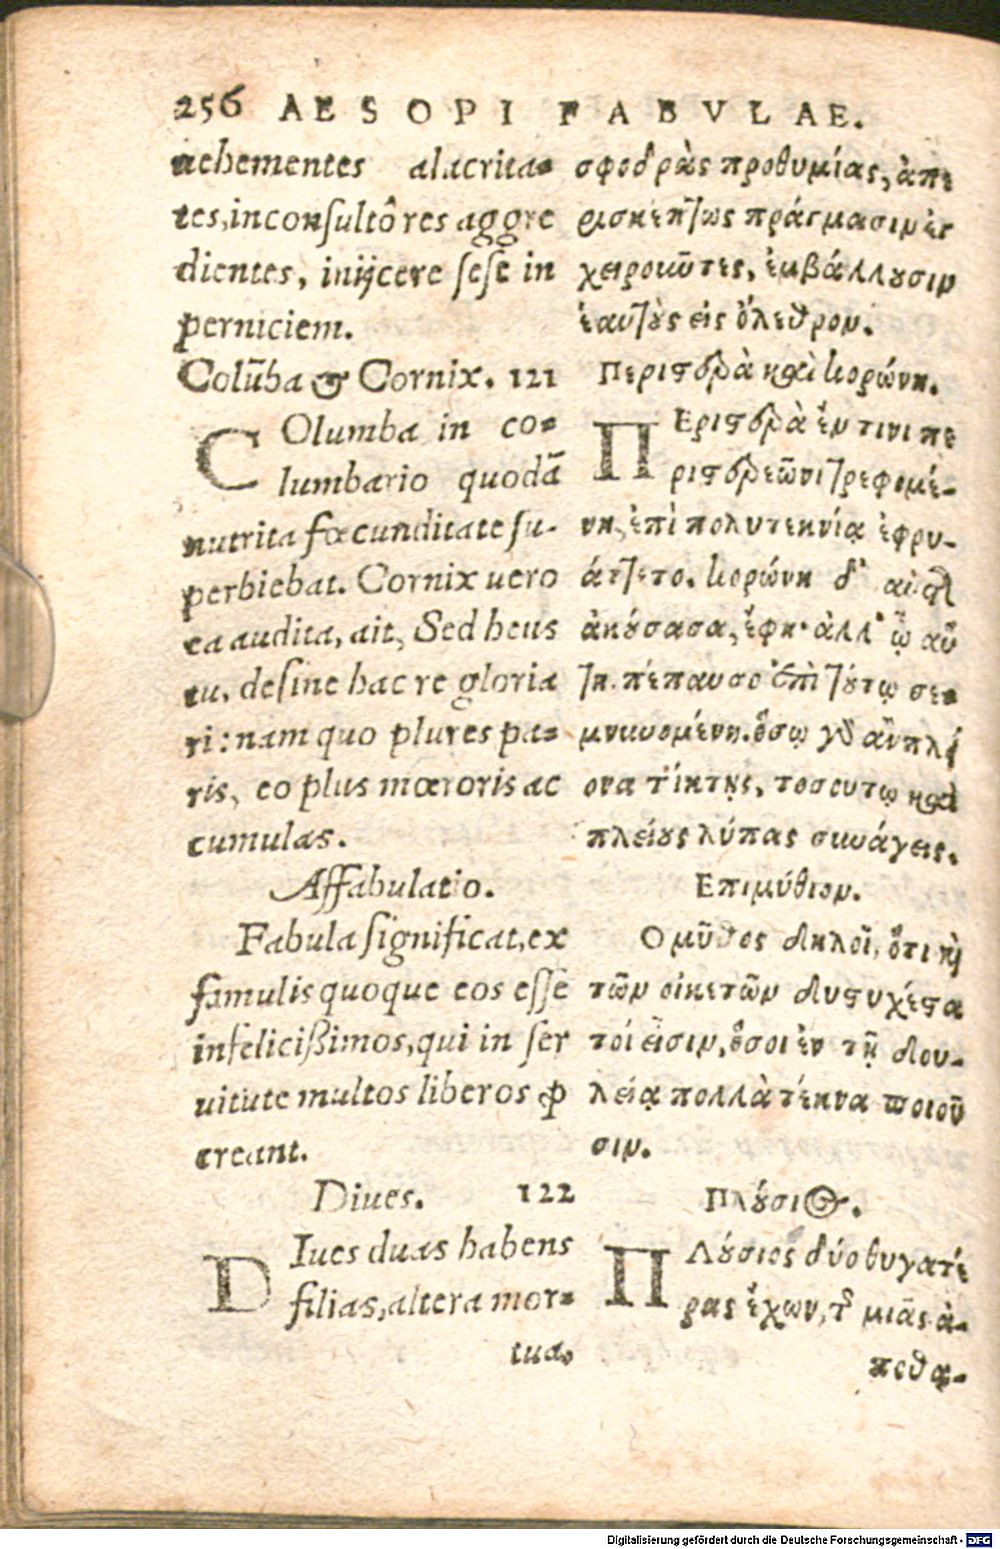 256 AESOPI FABVLAE.
uehementes alacrita-
tes, inconsultô res aggre
dientes, inijcere sese in
perniciem.
Colūba & Cornix. 121
COlumba in co-
lumbario quodā
nutrita fœcunditate su-
perbiebat. Cornix uero
ea audita, ait, Sed heus
tu, desine hac re gloria
ri: nam quo plures pa-
ris, eo plus mœroris ac
cumulas.
Affabulatio.
Fabula significat, ex
famulis quoque eos esse
infelicißimos, qui in ser
uitute multos liberos ꝓ
creant.
Diues. 122
DIues duas habens
filias, altera mor-
tua,
σφοδρὰς προθυμίας, ἀπε
ρισκέπτως πράγμασιν ἐγ
χειροιῶτες, ἐμβάλλουσιν
ἑαυτοὺς εἰς ὄλεθρον.
Περιστερὰ καὶ κορώνη.
ΠΕριστερὰ ἔν τινι πε
ριστερεῶνι τρεφομέ-
νη, ἐπὶ πολυτεκνίᾳ ἐφρυ-
άττετο. κορώνη δ' αὐτῆς
ἀκούσασα, ἔφη· ἀλλ' ὦ αὕ
τη. πέπαυσο ἐπὶ τούτῳ σε-
μνυνομένη. ὅσῳ γὰρ ἂν πλεί
ονα τίκτῃς, τοσούτῳ καὶ
πλείους λύπας συνάγεις.
Επιμύθιον.
Ο μῦθος δηλοῖ, ὅτι καὶ
τῶν οἰκετῶν δυστυχέστα
τοί εἰσιν, ὅσοι ἐν τῇ δου-
λείᾳ πολλὰ τέκνα ποιοῦ
σιν.
Πλούσιος.
ΠΛούσιος δύο θυγατέ
ρας ἔχων, τῆς μιᾶς ἀ-
ποθα-
Digitalisierung gefördert durch die Deutsche Forschungsgemeinschaft - DFG